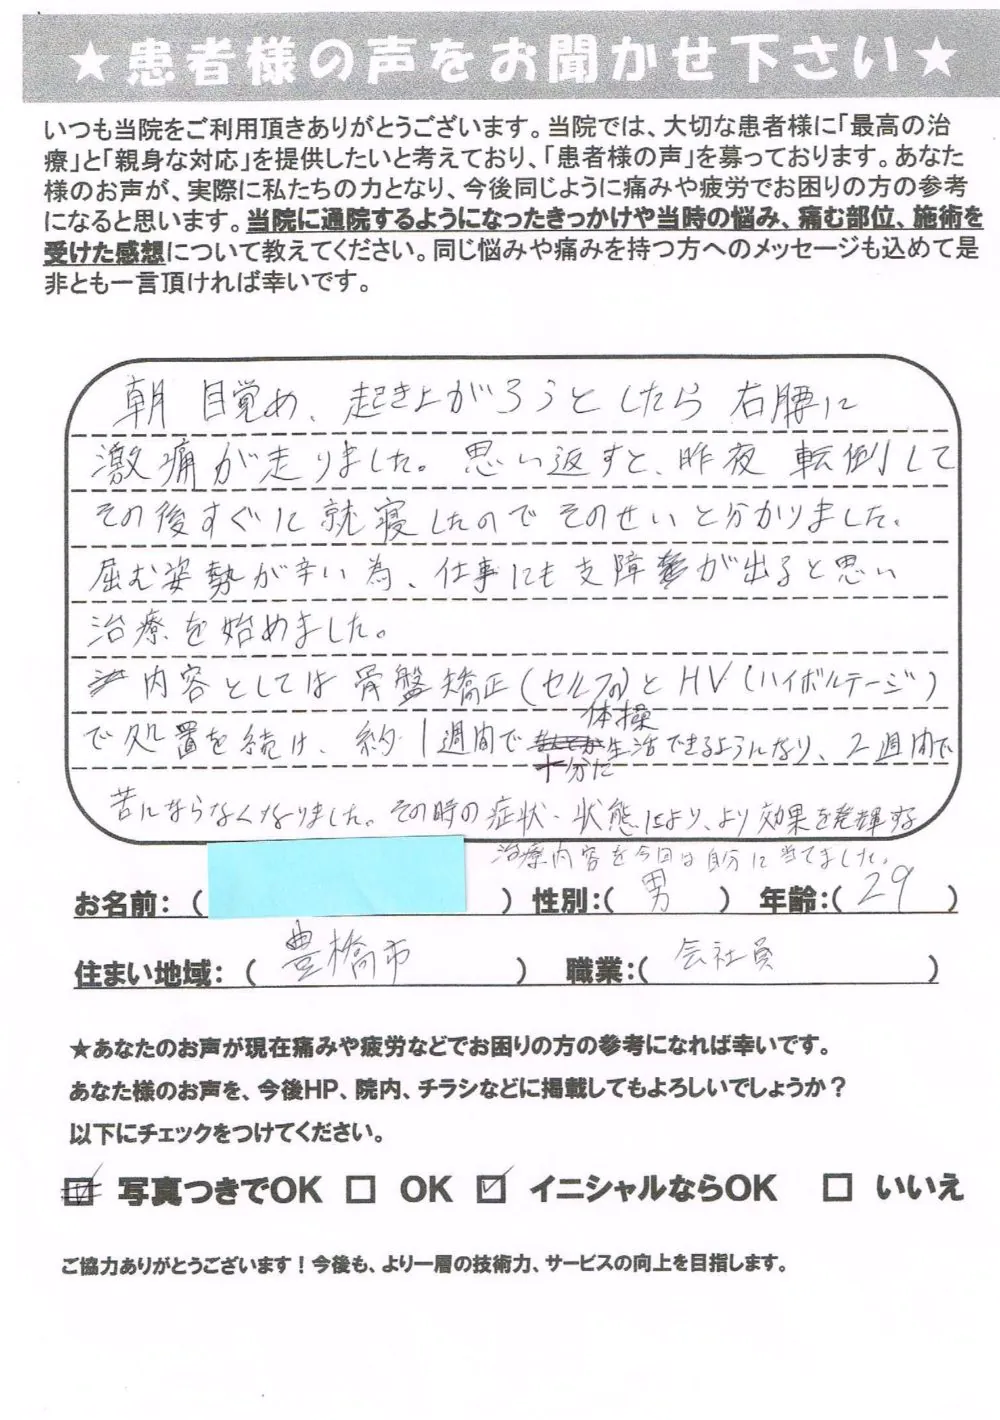 ★患者様の声をお聞かせ下さい★
いつも当院をご利用頂きありがとうございます。当院では、大切な患者様に「最高の治
療」と「親身な対応」を提供したいと考えており、「患者様の声」を募っております。あなた
様のお声が、実際に私たちの力となり、今後同じように痛みや疲労でお困りの方の参考
になると思います。当院に通院するようになったきっかけや当時の悩み、痛む部位、施術を
受けた感想について教えてください。同じ悩みや痛みを持つ方へのメッセージも込めて是
非とも一言頂ければ幸いです。
朝 目覚め、起き上がろうとしたら右腰に
激痛が走りました。思い返すと、昨夜 転倒して
その後すぐに就寝したのでそのせいと分かりました。
屈む姿勢が辛い為、仕事にも支障が出ると思い
治療を始めました。
内容としては骨盤矯正(セルフの体操)とHV(ハイボルテージ)
で処置を続け、約1週間で十分に生活できるようになり、2週間で
苦にならなくなりました。その時の症状・状態により、より効果を発輝する
治療内容を今回は自分に当てました。
お名前:( ) 性別:(男) 年齢:(29)
住まい地域:(豊橋市) 職業:(会社員)
★あなたのお声が現在痛みや疲労などでお困りの方の参考になれば幸いです。
あなた様のお声を、今後HP、院内、チラシなどに掲載してもよろしいでしょうか?
以下にチェックをつけてください。
☑ 写真つきでOK □ OK ☑ イニシャルならOK □ いいえ
ご協力ありがとうございます!今後も、より一層の技術力、サービスの向上を目指します。